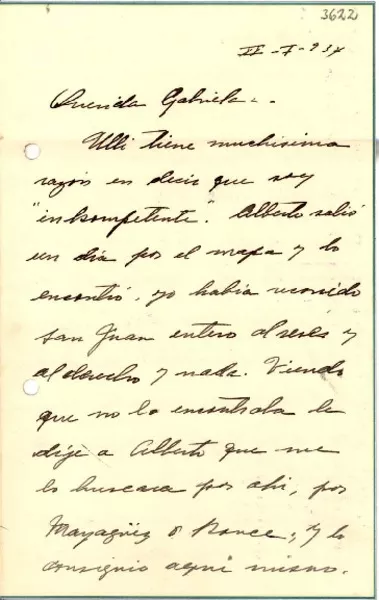 3622
II-I-937
Querida Gabriela:.
Ulli tiene muchisima
razón en decir que soy
"inkompetente". Alberto salió
un día por el mapa y lo
encontró, yo había recorrido
San Juan entero al revés y
al derecho y nada. Viendo
que no lo encontraba le
dije a Alberto que me
lo buscara por ahi, por
Mayagüez o Ponce, y lo
consiguio aquí mismo.